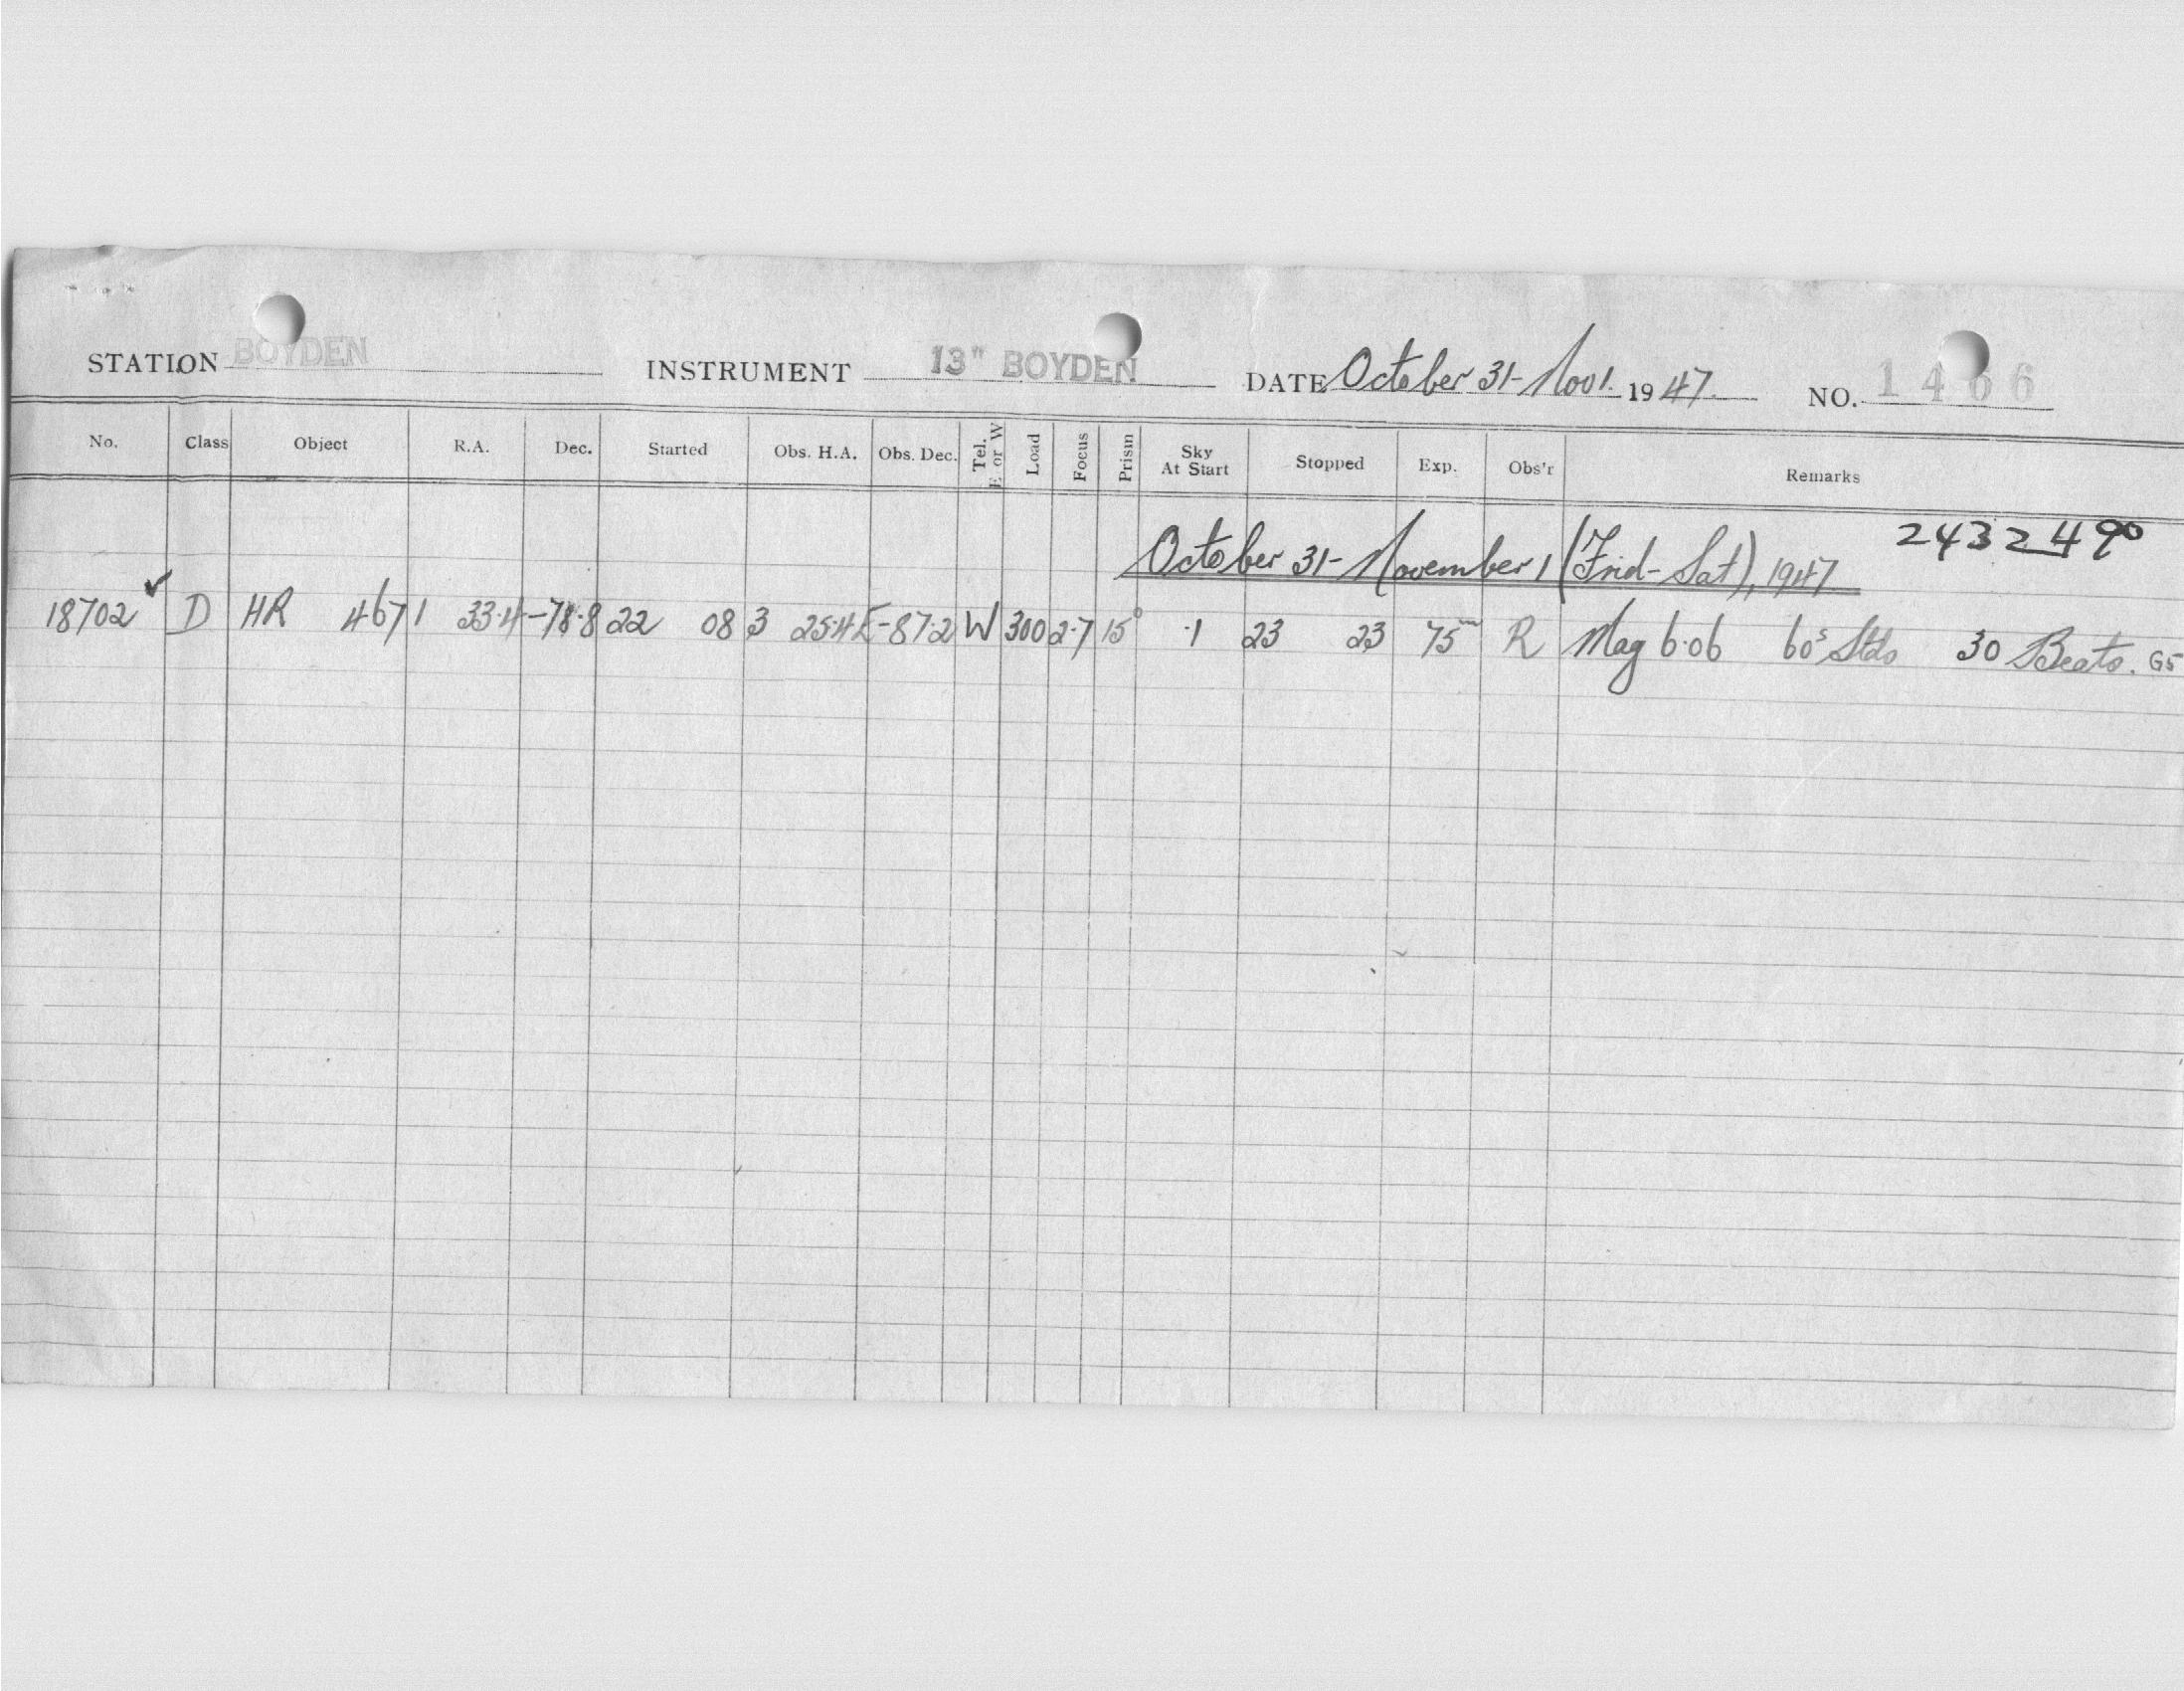 STATION BOYDEN INSTRUMENT 13" BOYDEN DATE October 31-Nov 1. 1947. NO. 1466
No. Class Object R.A. Dec. Started Obs. H.A. Obs. Dec. Tel. E or W Load Focus Prism Sky At Start Stopped Exp. Obs'r Remarks
October 31-November 1 (Frid-Sat), 1947 2432490
18702 ✓ D HR 4671 33.4 -78.8 22 08 3 25.4E -87.2 W 300 2.7 15° .1 23 23 75m R Mag 6.06 60s Stds 30 Beats. G5